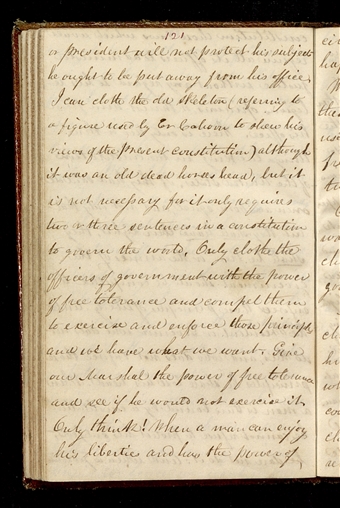 121
or president will not protect his subjects
he ought to be put away from his office.
I can clothe the old skeleton (refering to
a figure used by Er Calhoon to shew his
views of the present constitution) although
it was an old dead horses head, but it
is not necessary for it only requires
two or three sentences in a constitution
to govern the world. Only clothe the
officers of government with the power
of free tolerance and compel them
to exercise and enforce those principles
and we have what we want. Give
our Marshal the power of free tolerance
and see if he would not exercise it.
Only think! When a man can enjoy
his liberties and has the power of